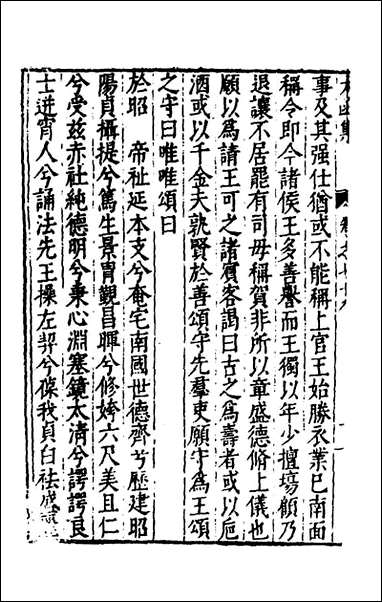 事及其强仕猶或不能稱上官王始勝衣業已南面
稱令即今諸侯王多善譽而王獨以年少擅塲顧乃
退讓不居罷有司毋稱賀非所以章盛德脩上儀也
願以爲請王可之諸賔客謁曰古之爲壽者或以巵
酒或以千金夫孰賢於善頌守先羣吏願守爲王頌
之守曰唯唯頌曰
於昭 帝祉延本支兮奄宅南國世德齊兮歷建昭
陽貞攝提兮篤生景胄觀昌暉兮修姱六尺美且仁
兮受茲赤社純德明兮秉心淵塞鏡太清兮諤諤良
士进宵人兮誦法先王操左契兮保我貞白祛